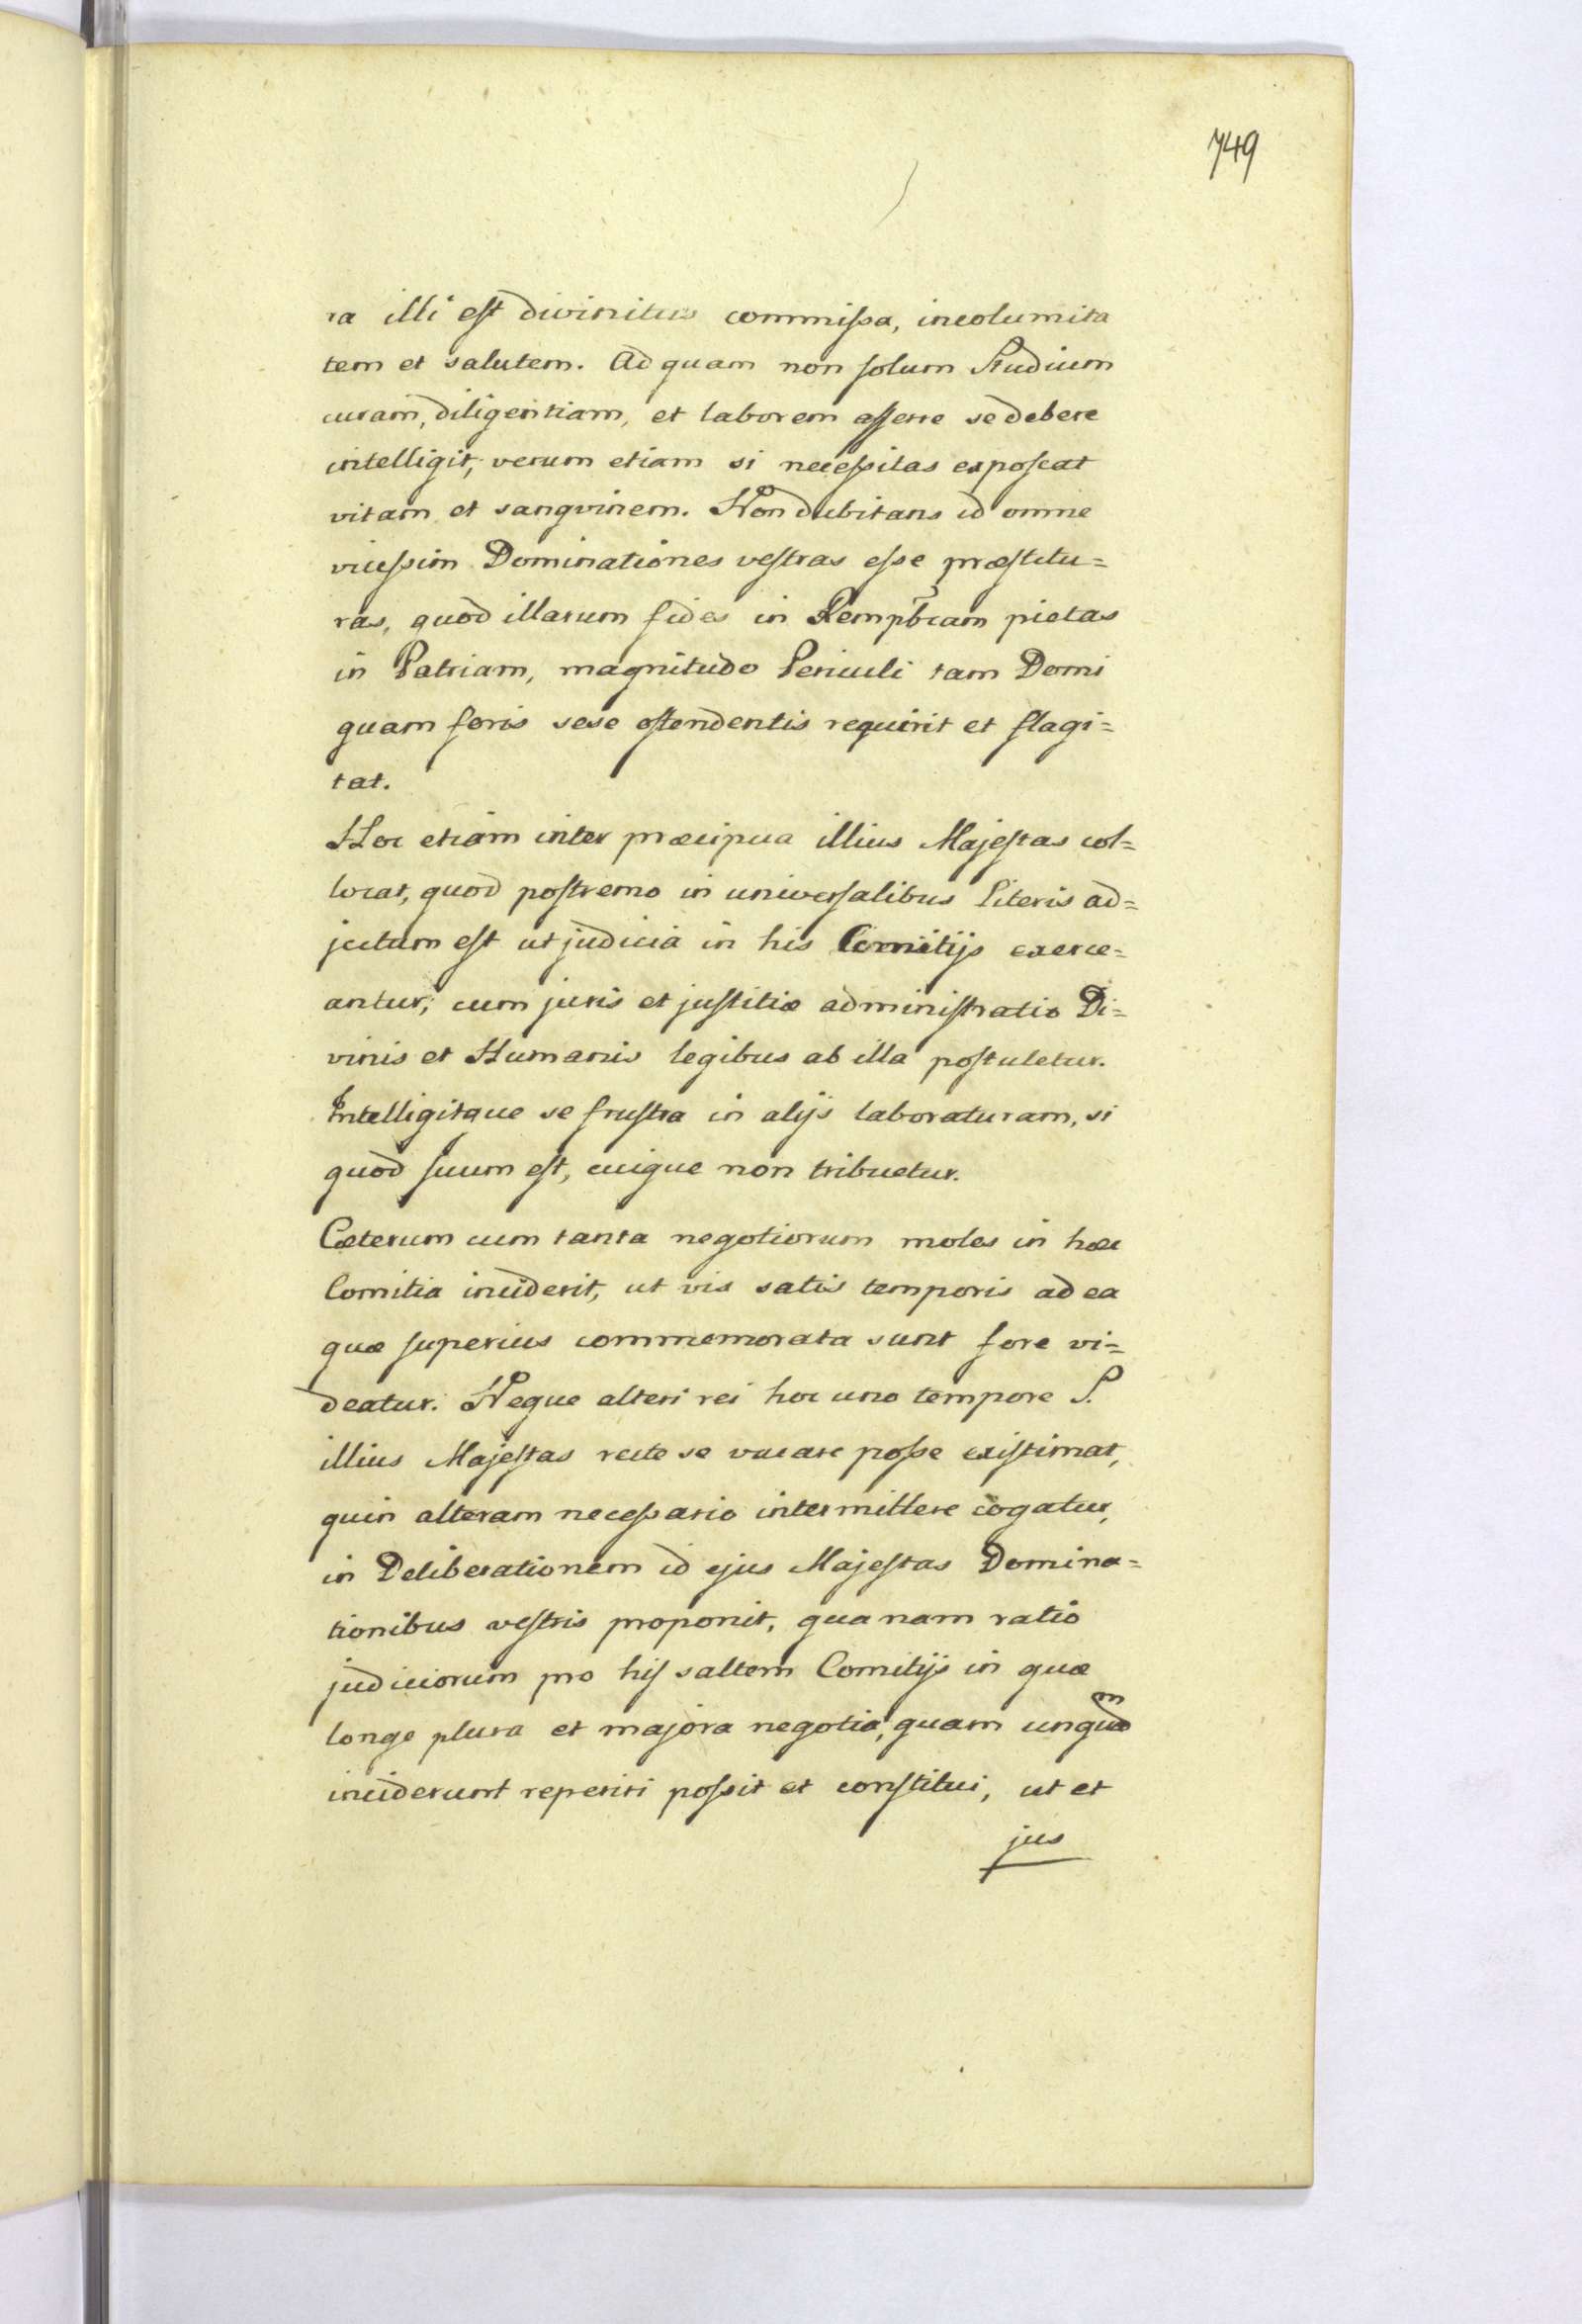 749
ra illi est divinitus commissa, incolumita
tem et salutem. Ad quam non solum Studium
curam, diligentiam, et laborem afferre se debere
intelligit, verum etiam si necessitas exposcat
vitam et sangvinem. Non dubitans id omne
vicissim Dominationes vestras esse præstitu=
ras, quod illarum fides in Rempbcam pietas
in Patriam, magnitudo Periculi tam Domi
quam foris sese ostendentis requirit et flagi=
tat.
Hoc etiam inter præcipua illius Majestas col=
locat, quod postremo in universalibus Literis ad=
jectum est ut judicia in his Comitijs exerce=
antur; cum juris et justitiæ administratio Di=
vinis et Humanis legibus ab illa postuletur.
Intelligitque se frustra in alijs laboraturam, si
quod suum est, cuique non tribuetur.
Cæterum cum tanta negotiorum moles in hæc
Comitia inciderit, ut vix satis temporis ad ea
quæ superius commemorata sunt fore vi=
deatur. Neque alteri rei hoc uno tempore S.
illius Majestas recte se vacare posse existimat,
quin alteram necessario intermittere cogatur,
in Deliberationem id ejus Majestas Domina=
tionibus vestris proponit, quanam ratio
judiciorum pro his saltem Comitijs in quæ
longe plura et majora negotia, quam unquam
inciderunt reperiri possit et constitui, ut et
jus